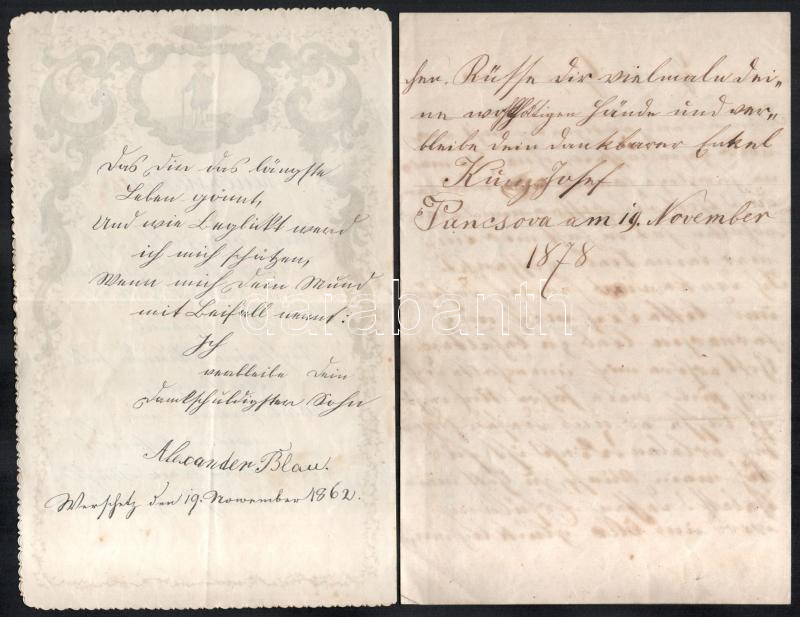 Das Dir das längste
Leben gönnt,
Und wie beglükt werd
ich mich schätzen,
Wenn mich Dein Mund
mit Beifall nennt:
Ich
verbleibe Dein
dankschuldigster Sohn
Alexander Blau.
Werschetz den 19. November 1862.
chen. Küsse dir vielmals dei-
ne wohlthätigen Hände und ver-
bleibe dein dankbarer Enkel
Josef
Pancsova am 19. November
1878
darabanth